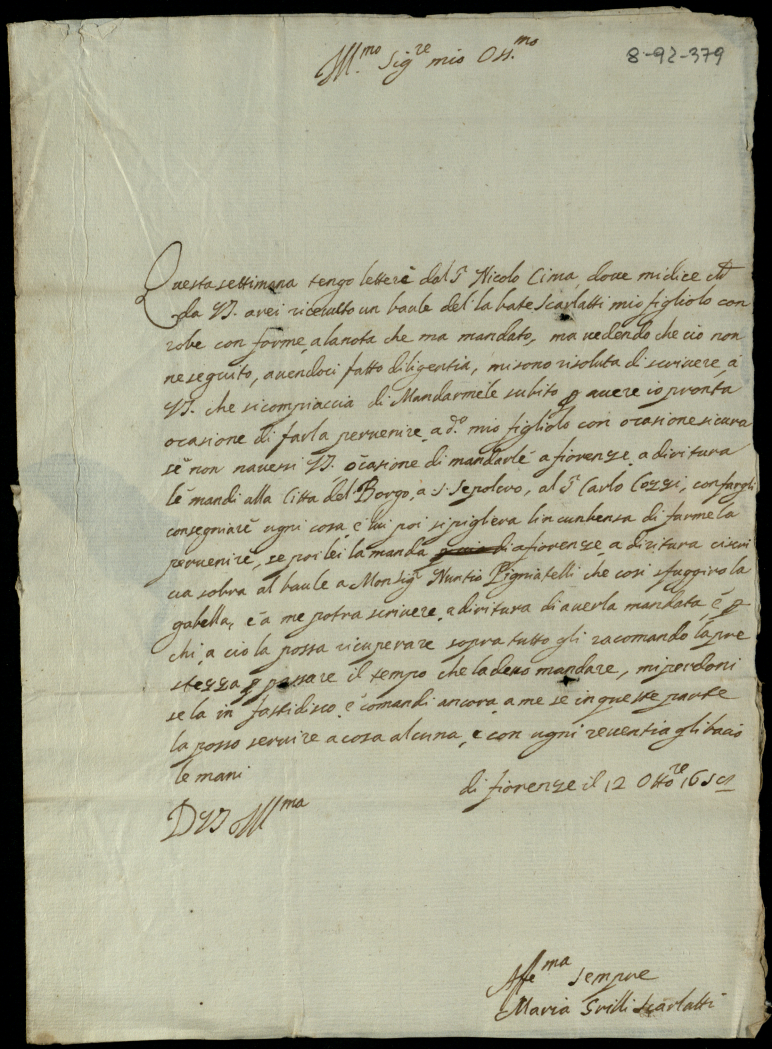 8-92-379
Ill.mo Sig.re mio Oss.mo
Questa settimana tengo lettere dal S.r Nicolo Cima, dove mi dice che
da VS. avei riceuuto un baule del la bate Scarlatti mio figliolo con
robe con forme, a la nota che ma mandato, ma vedendo che cio non
ne seguito, auendoci fatto diligentia, mi sono risoluta di scriuere, à
VS. che si compiaccia di Mandarmele subito p auere io pronta
ocasione di farla peruenire, a d.o mio figliolo con ocasione sicura
sè non nauessi VS. òcasione di mandarlè a fiorenze, a diritura
lè mandi alla Citta del Borgo, a S. Sepolcro, al S.r Carlo Cozzi, con fargli
consegniarè ogni cosa è lui poi si pigliera lincunbensa di farmela
peruenire, se poi lei la manda a fiorenze a diritura ci scri
ua sobra al baule a Monsig.r Nuntio Pigniatelli che cosi sfuggiro la
gabella, è a me potra scriuere, a diritura di auerla mandata, è p
chi, a cio la possa ricuperare sopra tutto gli racomando la pre
stezza p passare il tempo che la deuo mandare, mi perdoni
se la in fastidisco, è comandi ancora a me se in queste parte
la posso seruire a cosa alcuna, è con ogni reuentia gli bacio
le mani
di fiorenze il 12 Ott.re 165
D VS Ill.ma
Affe.ma sempre
Maria Grilli Scarlatti